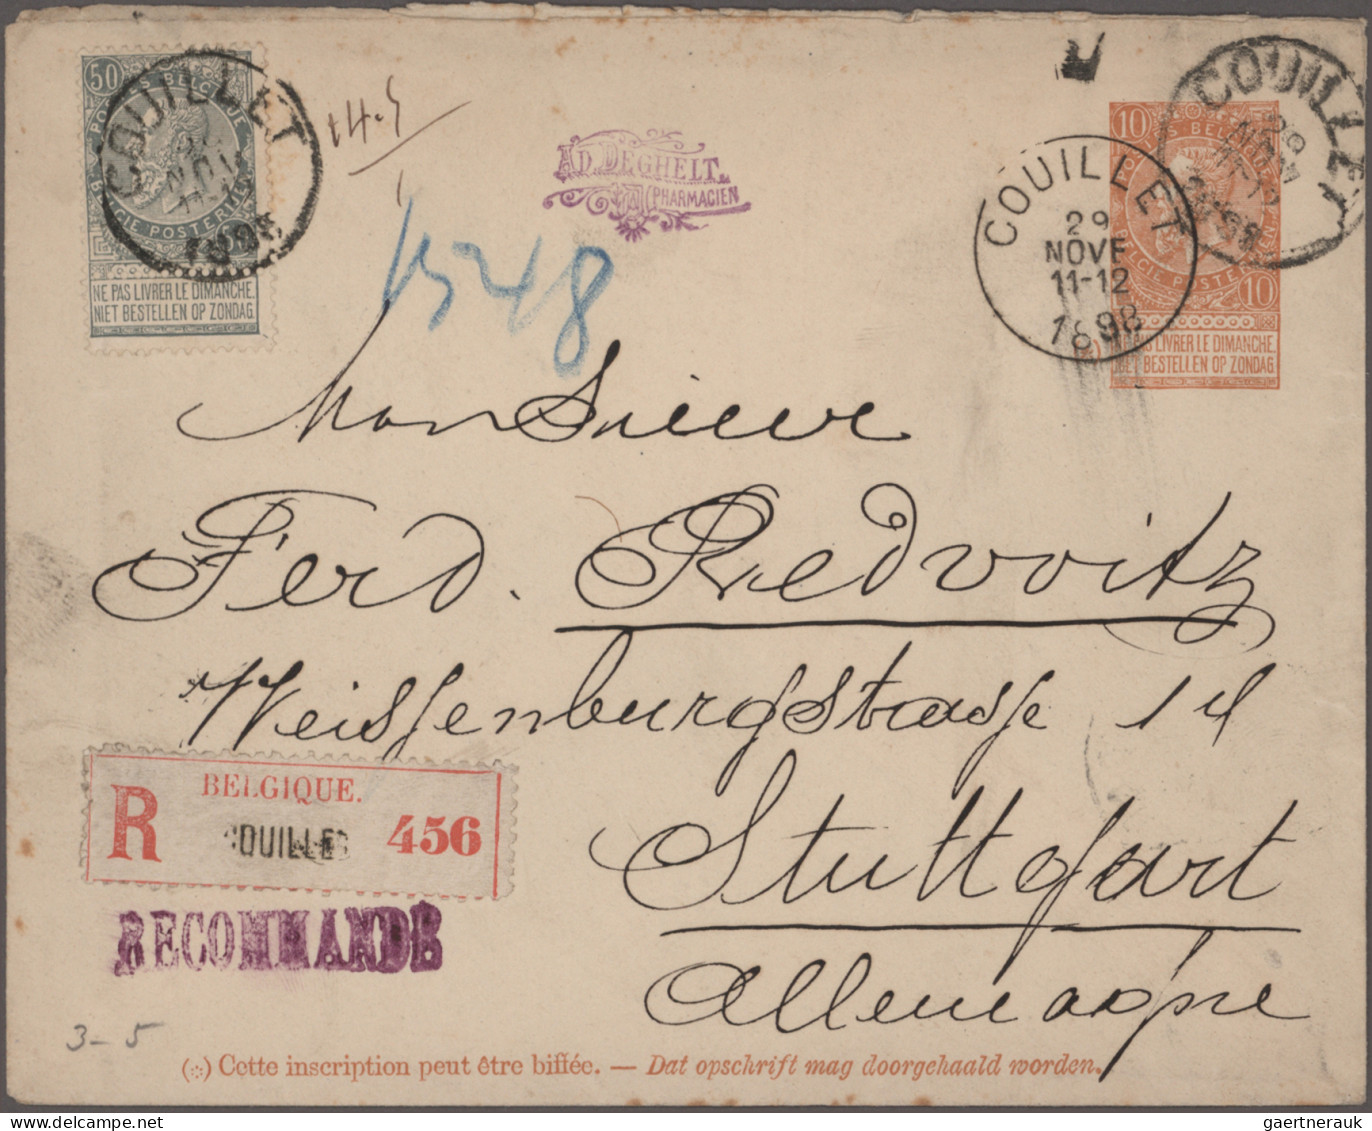 50
POSTES BELGIQUE
BELGIË POSTERIJEN
NE PAS LIVRER LE DIMANCHE.
NIET BESTELLEN OP ZONDAG.
COUILLET
1898
14.5
AD. DEGHELT.
PHARMACIEN
1548
10
10
COUILLET
29
NOVE
11-12
1898
COUILLET
LIVRER LE DIMANCHE.
BESTELLEN OP ZONDAG.
Monsieur
Ferd. Redwitz
Weissenburgstrasse
Stuttgart
Allemagne
BELGIQUE.
R COUILLET 456
RECOMMANDE
3-5
(*) Cette inscription peut être biffée. — Dat opschrift mag doorgehaald worden.
gaertnerauk @